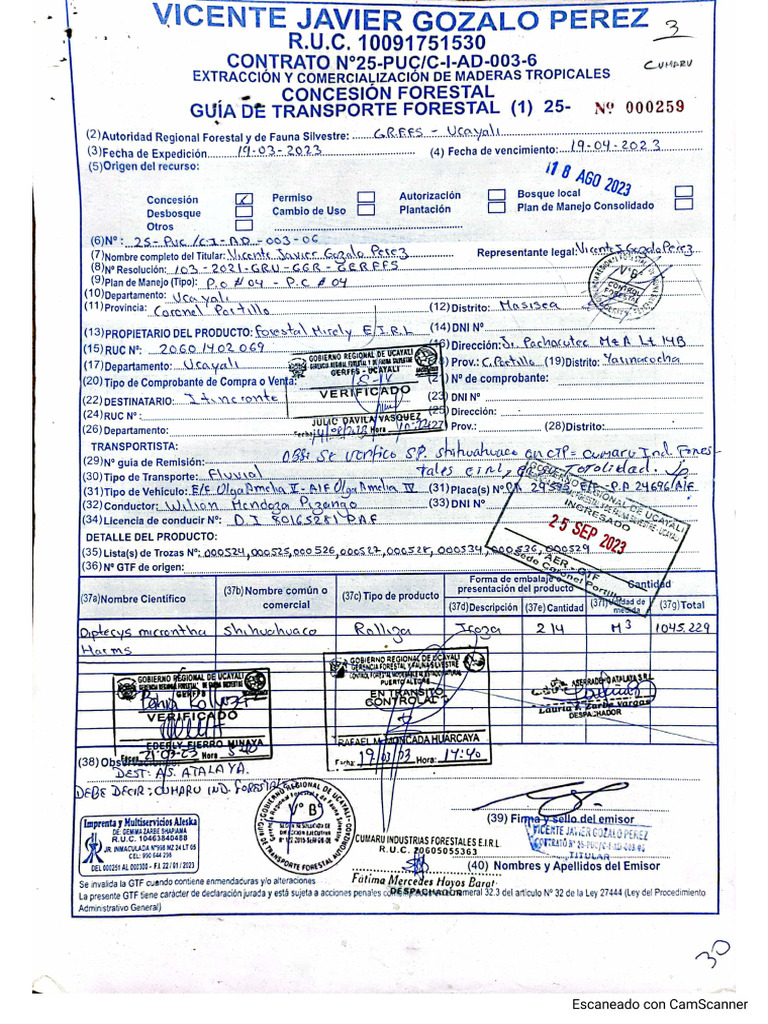 VICENTE JAVIER GOZALO PEREZ
R.U.C. 10091751530
3
CONTRATO N°25-PUC/C-I-AD-003-6
CUMARU
EXTRACCIÓN Y COMERCIALIZACIÓN DE MADERAS TROPICALES
CONCESIÓN FORESTAL
GUÍA DE TRANSPORTE FORESTAL (1) 25- Nº 000259
(2)Autoridad Regional Forestal y de Fauna Silvestre: GRFFS - Ucayali
(3)Fecha de Expedición 19-03-2023 (4) Fecha de vencimiento: 19-04-2023
(5)Origen del recurso:
18 AGO 2023
Concesión Permiso Autorización Bosque local
Desbosque Cambio de Uso Plantación Plan de Manejo Consolidado
Otros
(6)Nº : 25-Puc/C.I-A.D-003-06
(7)Nombre completo del Titular: Vicente Javier Gozalo Perez Representante legal: Vicente J. Gozalo Perez
(8)Nº Resolución: 103-2021-GRU-GGR-GERFFS
(9)Plan de Manejo (Tipo): P.O #04 - P.C #04
V°B°
CONTROL FORESTAL
(10)Departamento: Ucayali
(11)Provincia: Coronel Portillo (12)Distrito: Masisea
(13)PROPIETARIO DEL PRODUCTO: Forestal Mirely E.I.R.L (14)DNI Nº
(15)RUC Nº: 20601402069 (16)Dirección: Jr. Pachacutec Mz A Lt 14B
(17)Departamento: Ucayali (18)Prov.: C. Portillo (19)Distrito: Yarinacocha
GOBIERNO REGIONAL DE UCAYALI
GERFFS - UCAYALI
VERIFICADO
JULIO DAVILA VASQUEZ
(20)Tipo de Comprobante de Compra o Venta: Nº de comprobante:
(22)DESTINATARIO: Itinerante (23)DNI Nº
(24)RUC Nº : (25)Dirección:
(26)Departamento: Prov.: (28)Distrito:
TRANSPORTISTA: OBS: Se verifico SP. Shihuahuaco
(29)Nº guía de Remisión:
(30)Tipo de Transporte: Fluvial
(31)Tipo de Vehículo: E/F Olga Amelia V - A/F Olga Amelia IV (31)Placa(s) Nº
(32)Conductor: Wilian Mendoza Pizango (33)DNI Nº
(34)Licencia de conducir Nº:
GOBIERNO REGIONAL DE UCAYALI
INGRESADO
25 SEP 2023
AER - GTF
Sede Coronel Portillo
DETALLE DEL PRODUCTO:
(35)Lista(s) de Trozas Nº: 000524,000525,000526,000527,000528,000534,000536,000529
(36)Nº GTF de origen:
(37a)Nombre Científico (37b)Nombre común o comercial (37c)Tipo de producto Forma de embalaje o presentación del producto Cantidad
(37d)Descripción (37e)Cantidad (37f)Unidad de medida (37g)Total
Dipteryx micrantha Harms Shihuahuaco Rolliza Troza 214 M3 1045.229
GOBIERNO REGIONAL DE UCAYALI
VERIFICADO
EDERLY FIERRO MINAYA
GOBIERNO REGIONAL DE UCAYALI
GERENCIA FORESTAL Y FAUNA SILVESTRE
PUERTO ALEGRE
EN TRANSITO
CONTROLADO
RAFAEL MONCADA HUARCAYA
Fecha: 19/03/23 Hora 17:40
ASERRADERO ATALAYA S.R.L.
Lauria J. Zarbe Vargas
DESPACHADOR
(38) Observaciones:
DEST: AS. ATALAYA.
DEBE DECIR: CUMARU IND. FORESTALES
(39) Firma y sello del emisor
VICENTE JAVIER GOZALO PEREZ
TITULAR
(40) Nombres y Apellidos del Emisor
Imprenta y Multiservicios Aleska
DE: GEMIMA ZARBE SHAPIAMA
R.U.C. 10463840488
JR. INMACULADA Nº998 MZ 24 LT 05
CEL: 990 644 296
DEL 000251 AL 000300 - F.I. 22 / 01 / 2023
V° B°
GUIA DE TRANSPORTE FORESTAL AUTORIZADO
CUMARU INDUSTRIAS FORESTALES E.I.R.L.
R.U.C. 20605055363
Fátima Mercedes Hoyos Barat
DESPACHADOR
Se invalida la GTF cuando contiene enmendaduras y/o alteraciones
La presente GTF tiene carácter de declaración jurada y está sujeta a acciones penales numeral 32.3 del artículo Nº 32 de la Ley 27444 (Ley del Procedimiento
Administrativo General)
30
Escaneado con CamScanner